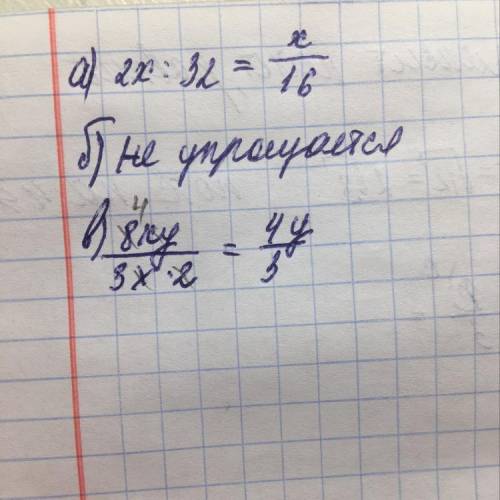 а) 2x : 32 = x/16
б) не упрощается
4
в) 8xy/3x·2 = 4y/3